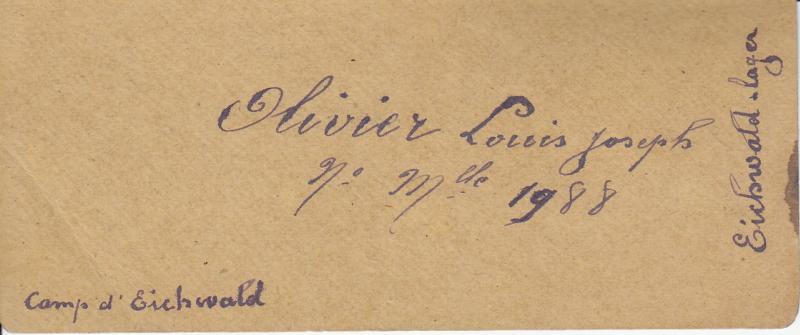 Olivier Louis Joseph
No Mlle 1988
Camp d'Eichwald
Eichwald-lager